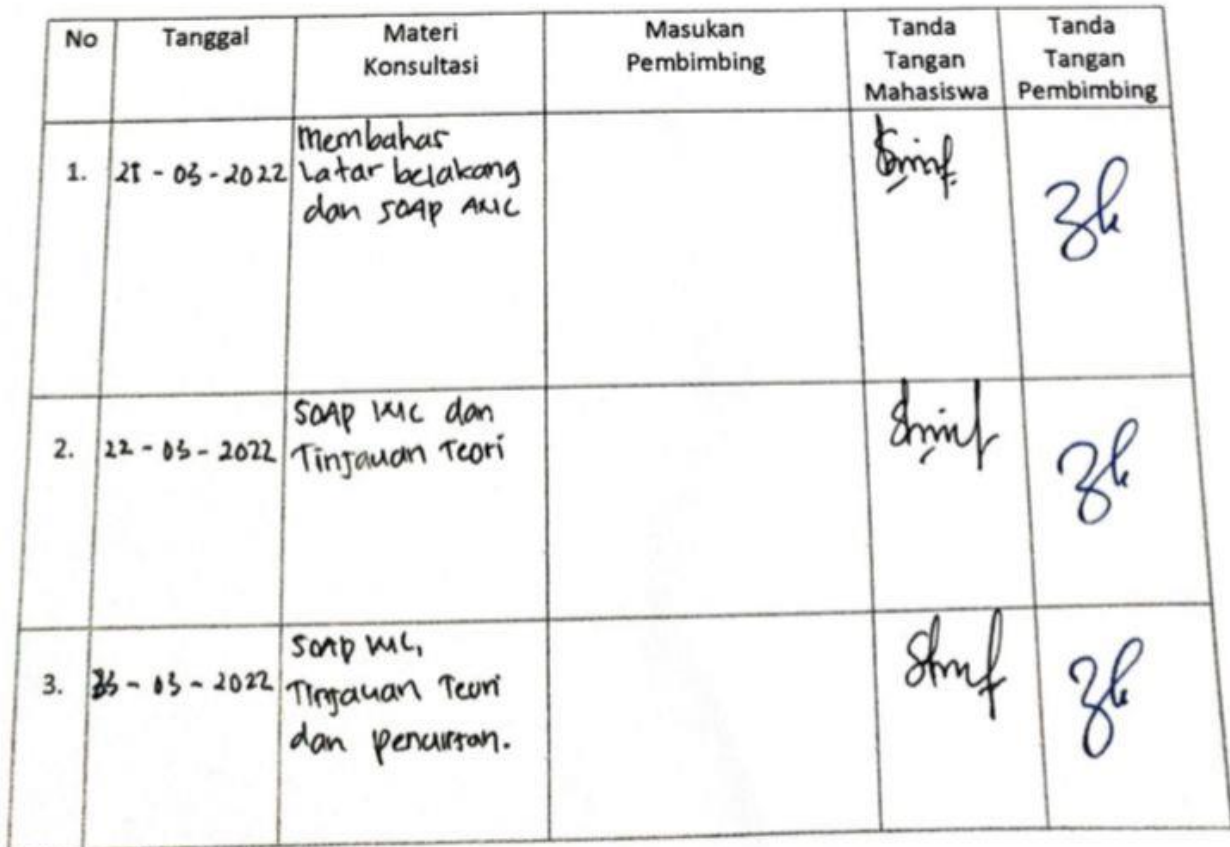 No Tanggal Materi Konsultasi Masukan Pembimbing Tanda Tangan Mahasiswa Tanda Tangan Pembimbing
1. 21 - 03 - 2022 Membahas
Latar belakang
dan SOAP ANC
2. 22 - 03 - 2022 SOAP INC dan
Tinjauan Teori
3. 23 - 03 - 2022 SOAP
Tinjauan Teori
dan penulisan.